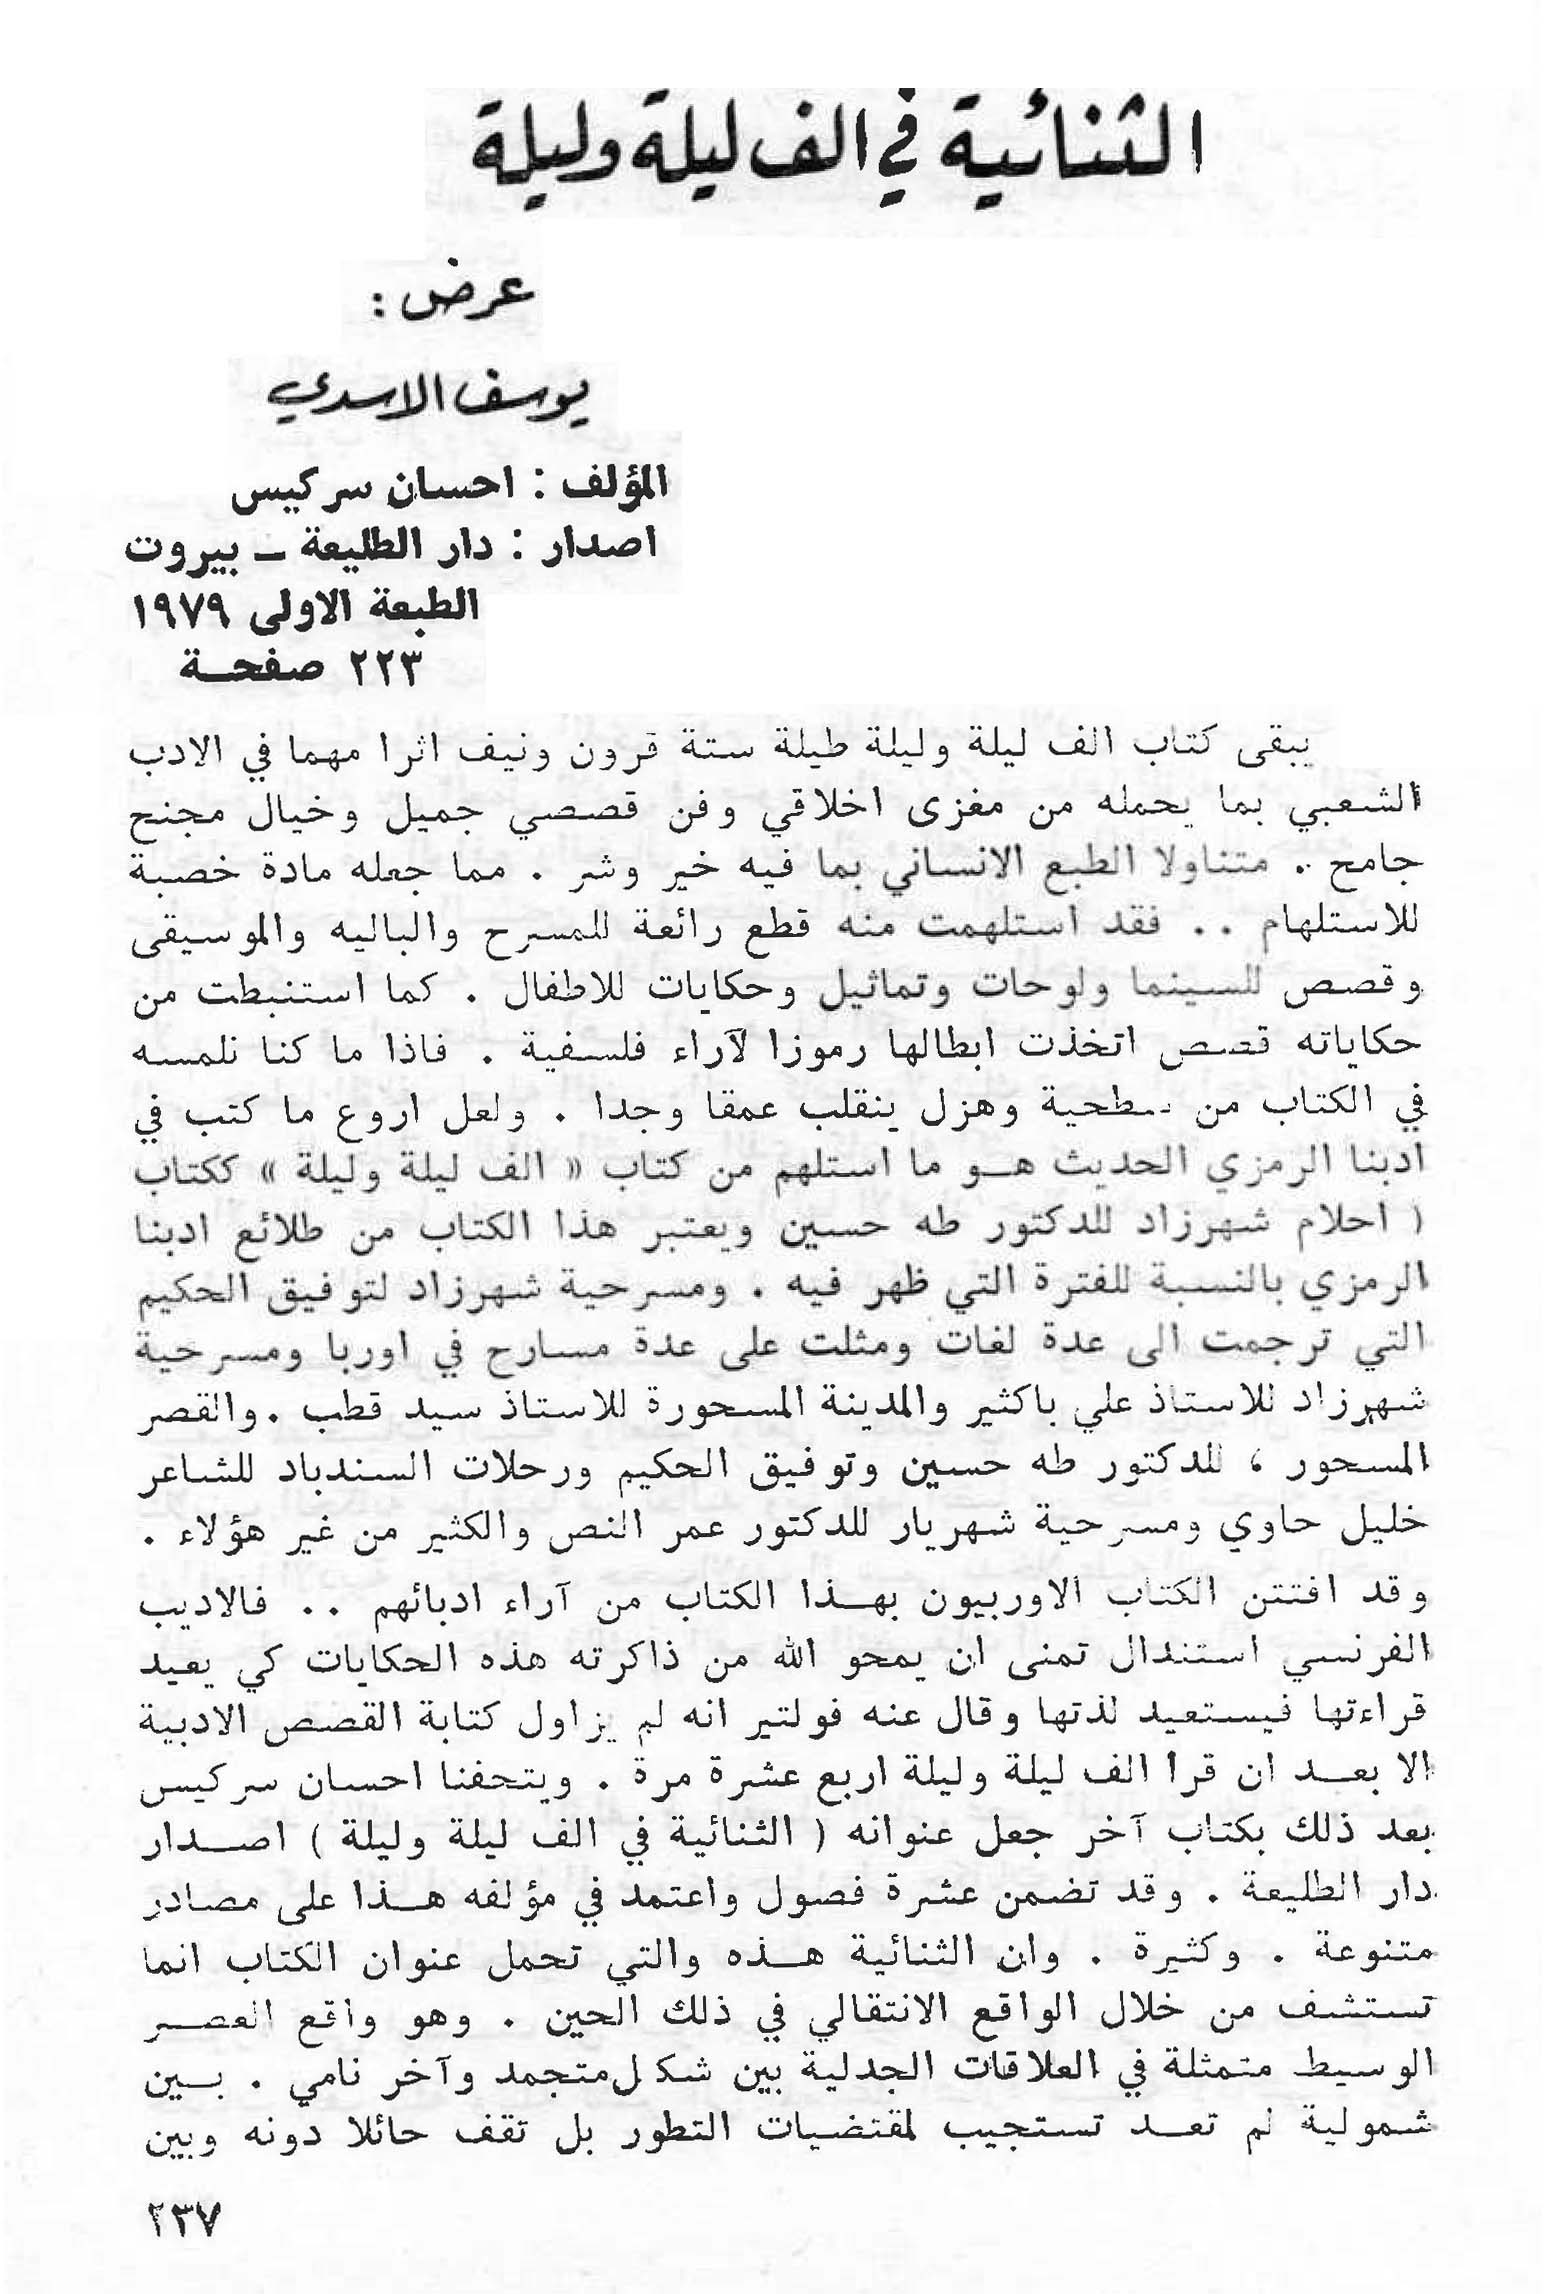 الثنائية في الف ليلة وليلة
عرض :
يوسف الاسدي
المؤلف : احسان سركيس
اصدار : دار الطليعة ــ بيروت
الطبعة الاولى ١٩٧٩
٢٢٣ صفحـــة
يبقى كتاب الف ليلة وليلة طيلة ستة قرون ونيف اثرا مهما في الادب
الشعبي بما يحمله من مغزى اخلاقي وفن قصصي جميل وخيال مجنح
جامح .. متناولا الطبع الانساني بما فيه خير وشر . مما جعله مادة خصبة
للاستلهام .. فقد استلهمت منه قطع رائعة للمسرح والباليه والموسيقى
وقصص للسينما ولوحات وتماثيل وحكايات للاطفال . كما استنبطت من
حكاياته قصص اتخذت ابطالها رموزا لآراء فلسفية . فاذا ما كنا نلمسه
في الكتاب من سطحية وهزل ينقلب عمقا وجدا . ولعل اروع ما كتب في
ادبنا الرمزي الحديث هــو ما استلهم من كتاب « الف ليلة وليلة » ككتاب
( احلام شهرزاد للدكتور طه حسين ويعتبر هذا الكتاب من طلائع ادبنا
الرمزي بالنسبة للفترة التي ظهر فيه . ومسرحية شهرزاد لتوفيق الحكيم
التي ترجمت الى عدة لغات ومثلت على عدة مسارح في اوربا ومسرحية
شهرزاد للاستاذ علي باكثير والمدينة المسحورة للاستاذ سيد قطب . والقصر
المسحور ، للدكتور طه حسين وتوفيق الحكيم ورحلات السندباد للشاعر
خليل حاوي ومسرحية شهريار للدكتور عمر النص والكثير من غير هؤلاء .
وقد افتتن الكتاب الاوربيون بهــذا الكتاب من آراء ادبائهم .. فالاديب
الفرنسي استندال تمنى ان يمحو الله من ذاكرته هذه الحكايات كي يعيد
قراءتها فيستعيد لذتها وقال عنه فولتير انه لم يزاول كتابة القصص الادبية
الا بعــد ان قرأ الف ليلة وليلة اربع عشرة مرة . ويتحفنا احسان سركيس
بعد ذلك بكتاب آخر جعل عنوانه ( الثنائية في الف ليلة وليلة ) اصــدار
دار الطليعة . وقد تضمن عشرة فصول واعتمد في مؤلفه هــذا على مصادر
متنوعة . وكثيرة . وان الثنائية هــذه والتي تحمل عنوان الكتاب انما
تستشف من خلال الواقع الانتقالي في ذلك الحين . وهو واقع العصــر
الوسيط متمثلة في العلاقات الجدلية بين شكل متجمد وآخر نامي . بــين
شمولية لم تعــد تستجيب لمقتضيات التطور بل تقف حائلا دونه وبين
٢٣٧